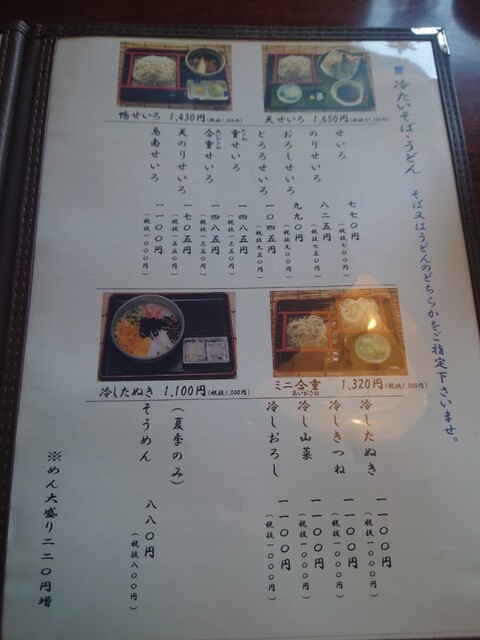 ■ 冷たいそば・うどん そば又はうどんのどちらかをご指定下さいませ。
鴨せいろ 1,430円(税抜1,300円)
天せいろ 1,650円(税抜1,500円)
せいろ 七七〇円(税抜七〇〇円)
のりせいろ 八二五円(税抜七五〇円)
おろしせいろ 九九〇円(税抜九〇〇円)
とろろせいろ 一〇四五円(税抜九五〇円)
重せいろ 一四八五円(税抜一三五〇円)
合重せいろ 一四八五円(税抜一三五〇円)
天のりせいろ 一七〇五円(税抜一五五〇円)
鳥南せいろ 一一〇〇円(税抜一〇〇〇円)
冷したぬき 1,100円(税抜1,000円)
ミニ合重 1,320円(税抜1,200円)
あいがさね
冷したぬき 一一〇〇円(税抜一〇〇〇円)
冷しきつね 一一〇〇円(税抜一〇〇〇円)
冷し山菜 一一〇〇円(税抜一〇〇〇円)
冷しおろし 一一〇〇円(税抜一〇〇〇円)
(夏季のみ)
そうめん 八八〇円(税抜八〇〇円)
※めん大盛り二二〇円増